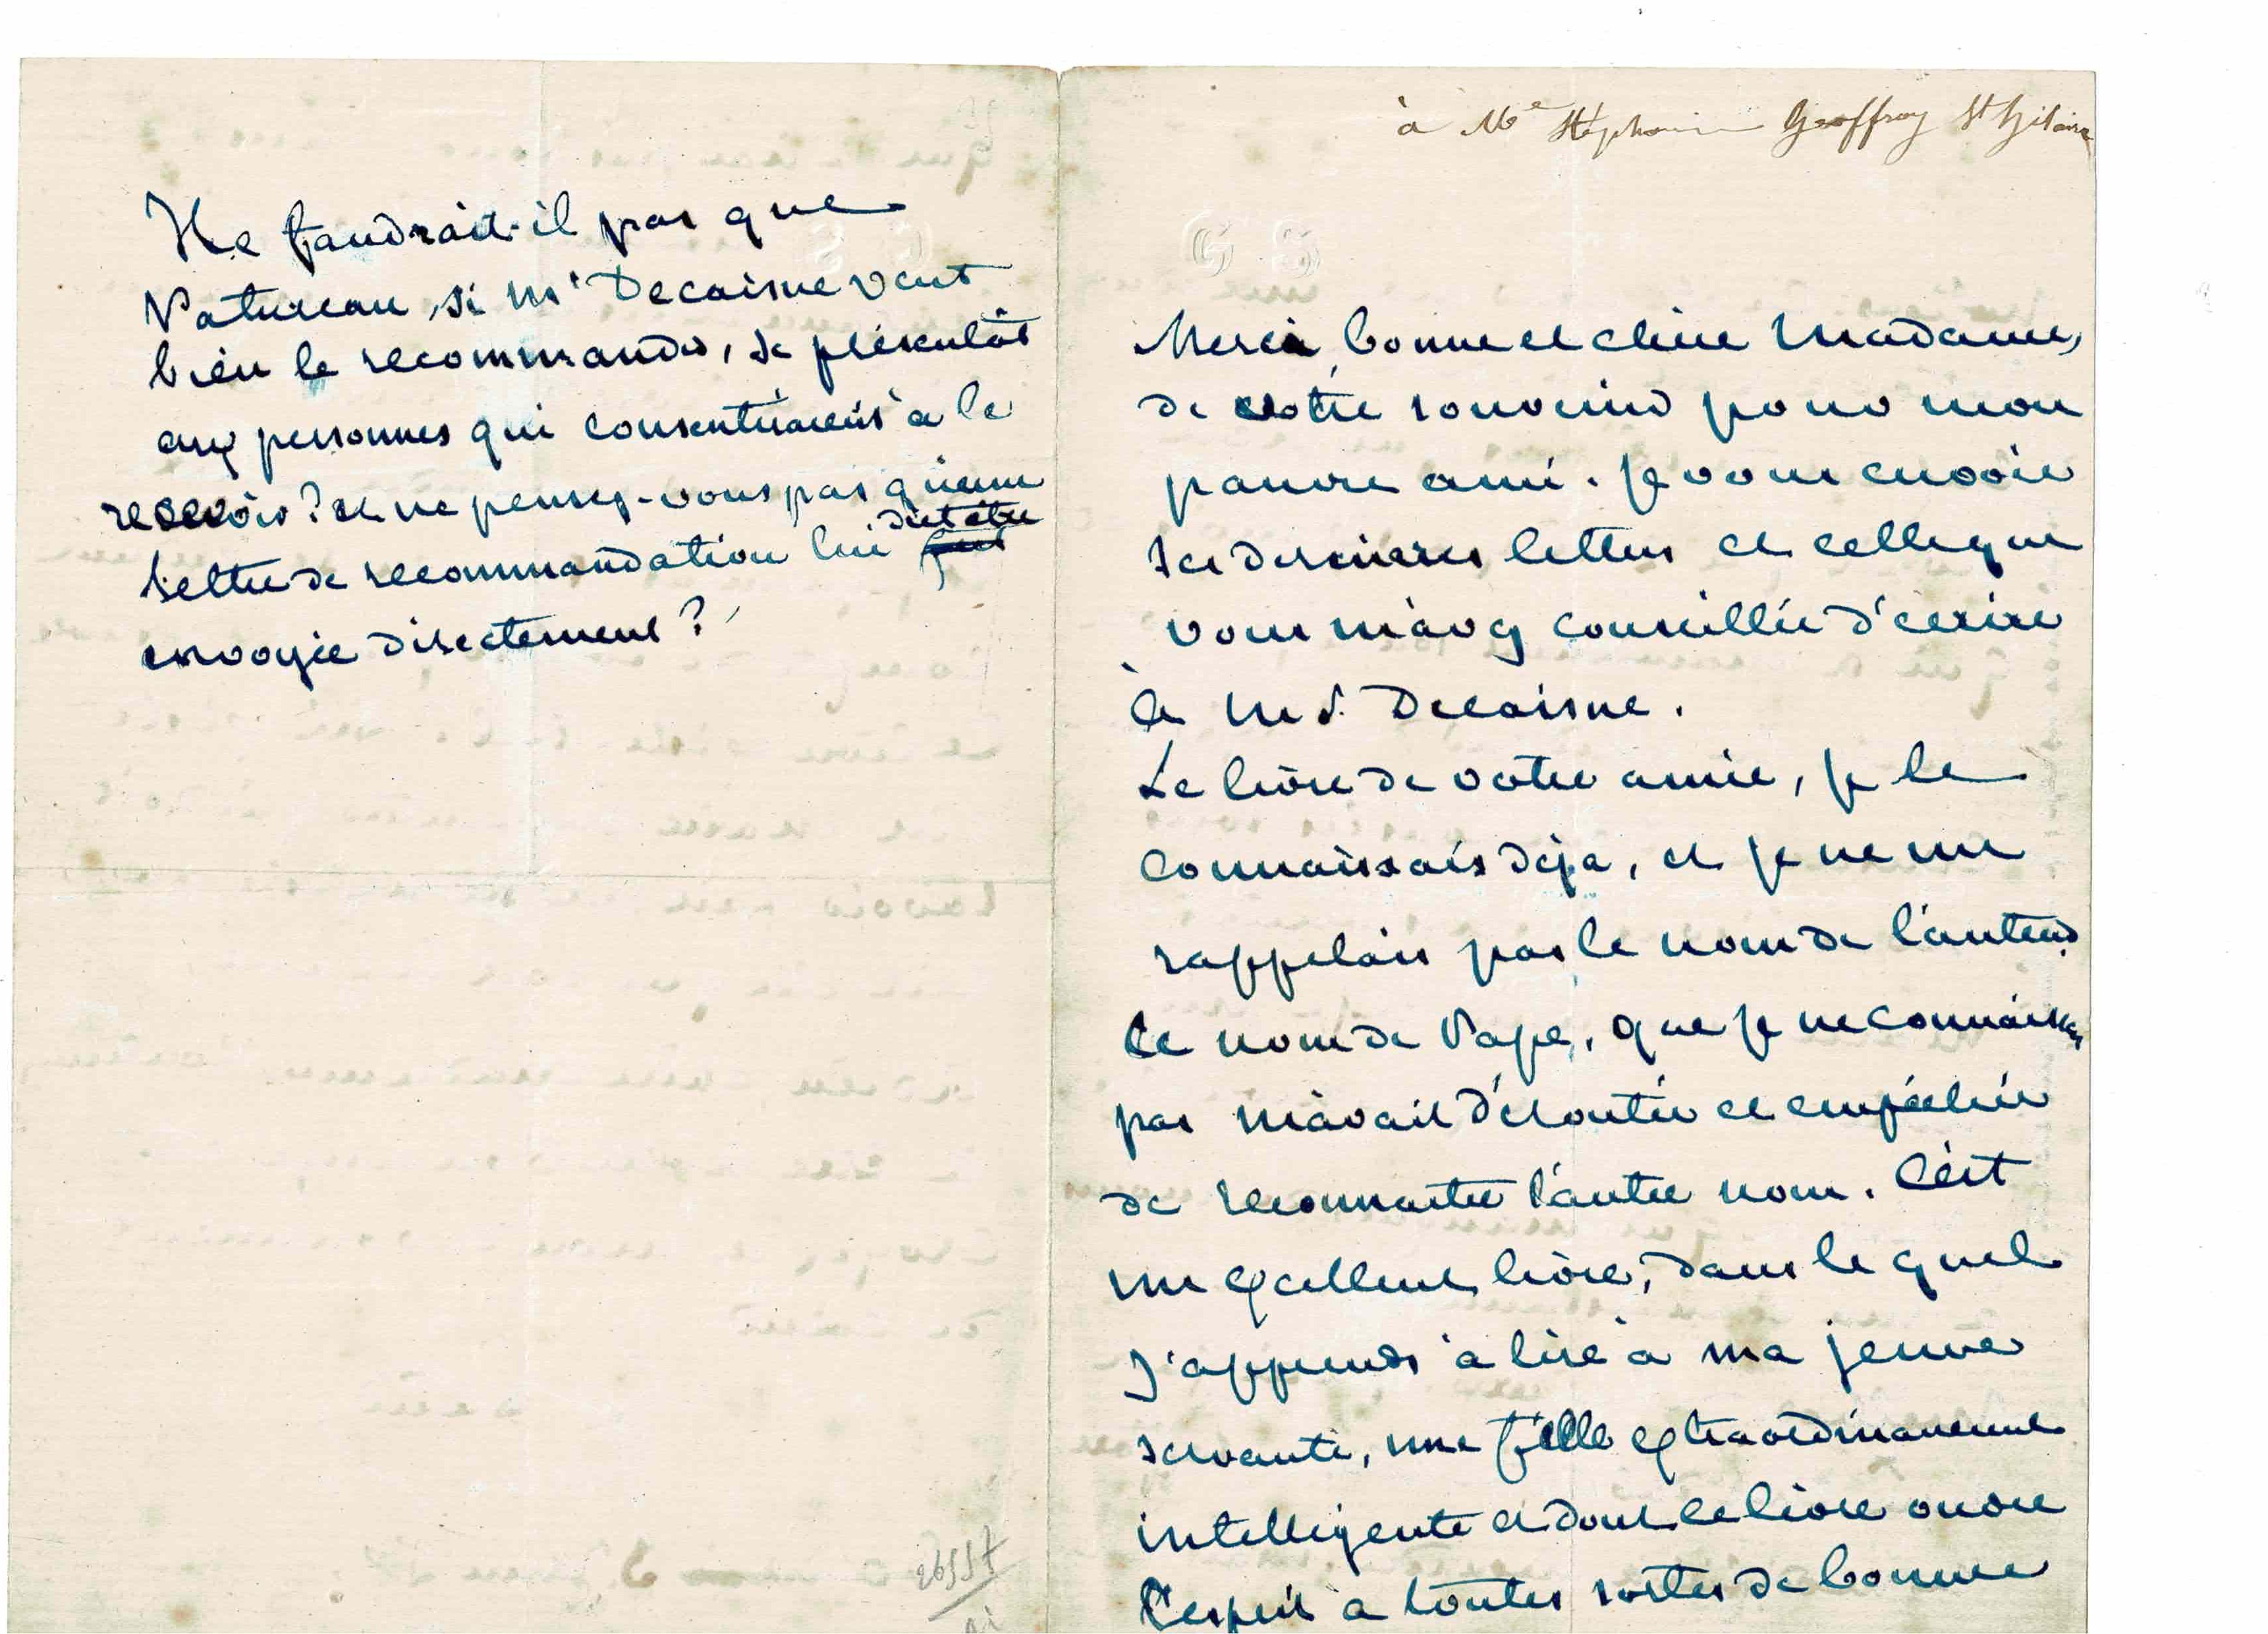 à Mᵉ Stéphanie Geoffroy St Hilaire
G S
Merci, bonne et chère Madame,
de votre souvenir pour mon
pauvre ami. Je vous envoie
ses dernieres lettres et celle que
vous m'avez conseillée d'écrire
à Mr. Decaisne.
Le livre de votre amie, je le
connaissais deja, et je ne me
rappelais pas le nom de l'auteur.
Le nom de Pape, que je ne connaissais
pas m'avait déroutée et empéchée
de reconnaitre l'autre nom. C'est
un excellent livre, dans le quel
J'apprends à lire à ma jeune
servante, une fille extraordinairement
intelligente et dont ce livre ouvre
l'esprit à toutes sortes de bonnes
Ne faudrait-il pas que
Patureau, si Mr Decaisne veut
bien le recommander, se présentât
aux personnes qui consentiraient à le
recevoir? et ne pensez-vous pas qu'une
lettre de recommandation lui dût être
envoyée directement?
26357